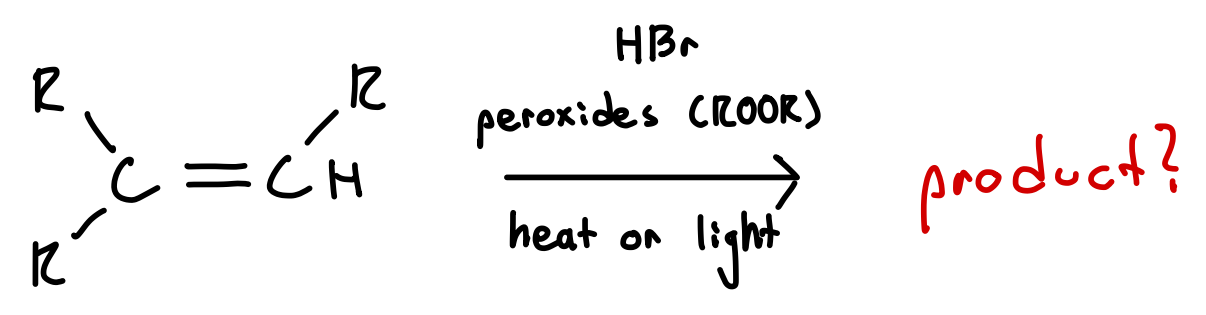 HBr
R R
peroxides (ROOR)
C = CH
product?
R
heat or light